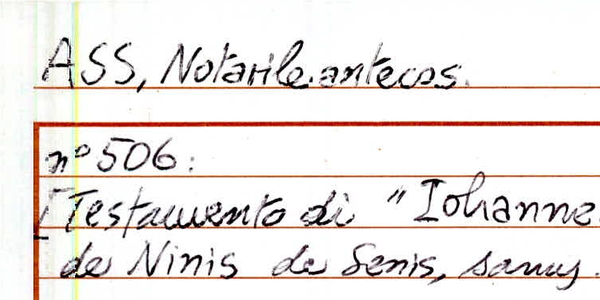 ASS, Notarile antecos.
n° 506:
[Testamento di "Iohanne
de Ninis de Senis, sanus